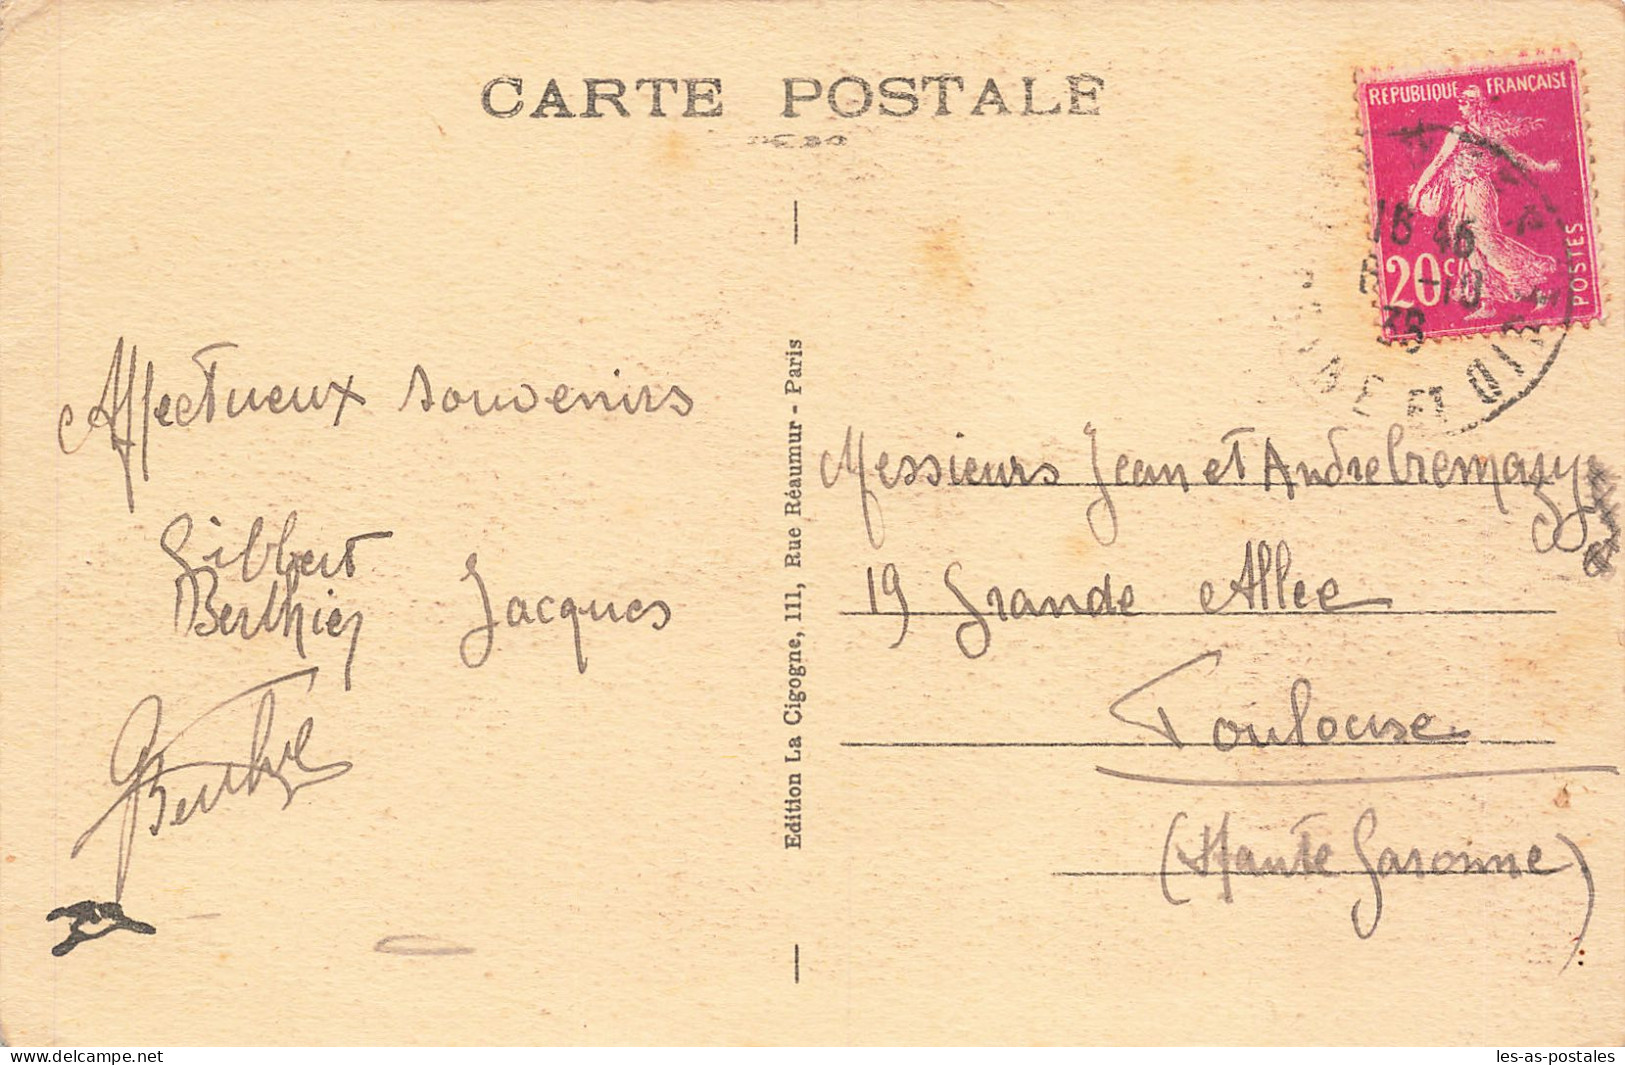 CARTE POSTALE
REPUBLIQUE FRANÇAISE
POSTES
20c
18 45
-10
36
SEINE ET OISE
Affectueux souvenirs
Gilbert
Berthier Jacques
Edition La Cigogne, 111, Rue Réaumur - Paris
Messieurs Jean et André
19 Grande Allee
Toulouse
(Haute Garonne)
delcampe.net
les-as-postales